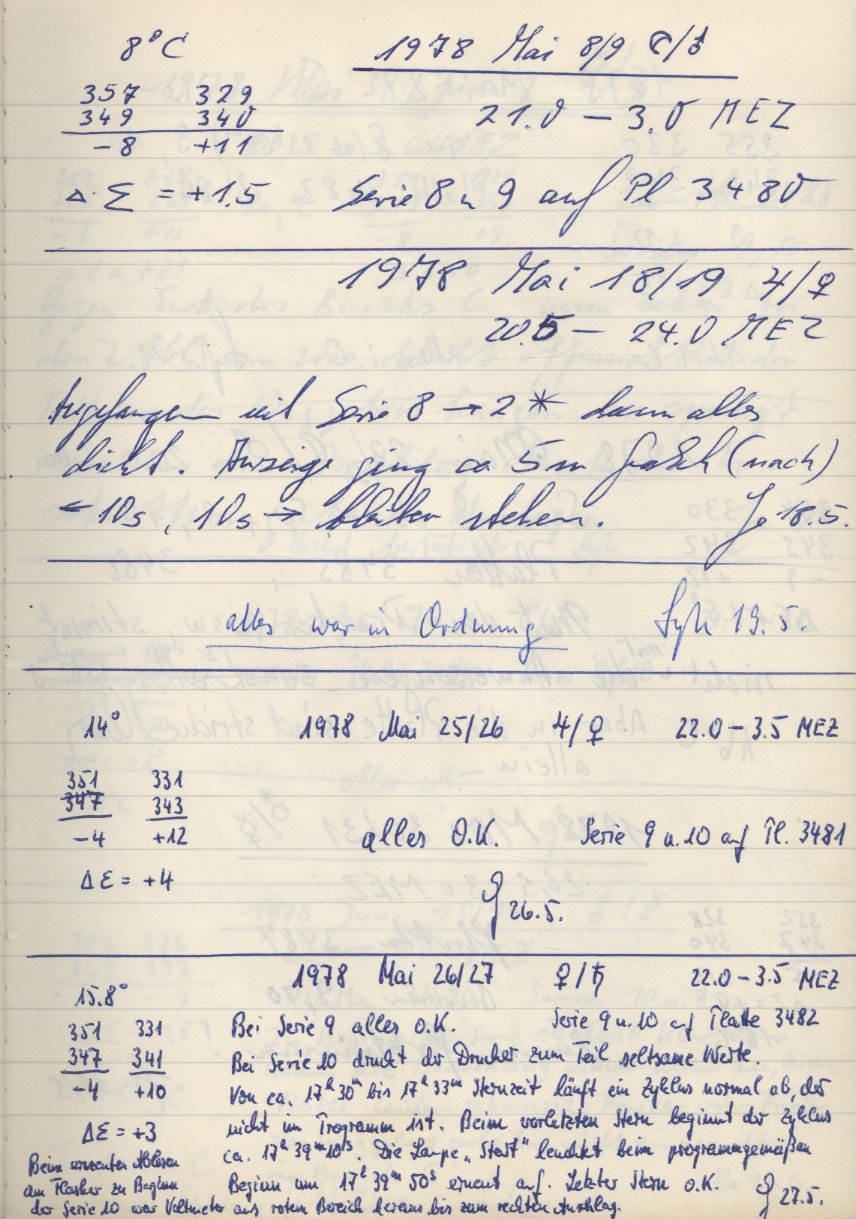 8°C 1978 Mai 8/9 ☾/♂
357 329
349 340 21.0 – 3.0 MEZ
-8 +11
Δ Σ = +1.5 Serie 8 u 9 auf Pl 3480
1978 Mai 18/19 ♃/♀
20.5 – 24.0 MEZ
Angefangen mit Serie 8 → 2 * dann alles
dicht. Anzeige ging ca 5m falsch (nach)
← 10s, 10s → bleiben stehen. 18.5.
alles war in Ordnung 19.5.
14° 1978 Mai 25/26 ♃/♀ 22.0 – 3.5 MEZ
351 331
347 343
-4 +12 alles O.K. Serie 9 u. 10 auf Pl. 3481
Δε = +4
26.5.
1978 Mai 26/27 ♀/♄ 22.0 – 3.5 MEZ
15.8°
351 331 Bei Serie 9 alles O.K. Serie 9 u. 10 auf Platte 3482
347 341 Bei Serie 10 druckt der Drucker zum Teil seltsame Werte.
-4 +10 Von ca. 17h 30m bis 17h 33m Sternzeit läuft ein Zyklus normal ab, der
nicht im Programm ist. Beim vorletzten Stern beginnt der Zyklus
Δε = +3 ca. 17h 39m 10s. Die Lampe „Start" leuchtet beim programmgemäßen
Beginn um 17h 39m 50s erneut auf. Letzter Stern O.K. 27.5.
Beim erneuten Ablesen
am Flasher zu Beginn
der Serie 10 war Voltmeter aus rotem Bereich heraus bis zum rechten Anschlag.